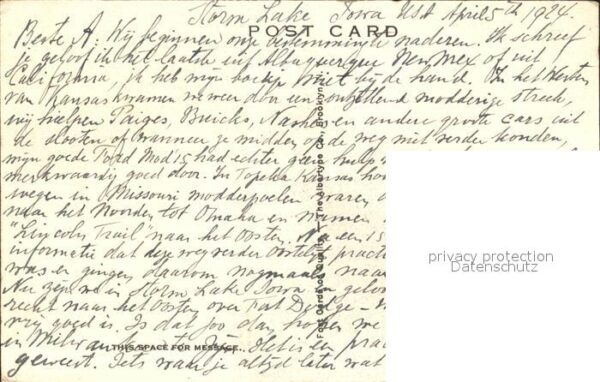 Storm Lake Iowa USA April 5th 1924.
POST CARD
Beste A. Wij beginnen onze bestemming te naderen. Ik schreef
je geloof ik het laatste uit Albuquerque New Mex of uit
California, ik heb mijn boekje niet bij de hand. In het Westen
van Kansas kwamen we weer door een ontzettend modderige streek,
wij hielpen Paiges, Buicks, Nashes en andere groote cars uit
de slooten of wanneer ze midden op de weg niet verder konden,
mijn goede Ford Mod 15 had echter geen hulp
merkwaardig goed door. In Topeka Kansas
wegen in Missouri modderpoelen waren
naar het Noorden tot Omaha en namen
"Lincoln Trail" naar het Oosten. Na een 15
informatie dat deze weg verder oostelijk
was en gingen daarom nogmaals naar
Nu zijn we in Storm Lake Iowa en
recht naar het Oosten over Fort Dodge
weg goed is. Is dat zoo dan hopen we
in Milwaukee te zijn. Het is een
geweest. Iets waar je altijd later wat
THIS SPACE FOR MESSAGE
Post Cards of Quality. - The Albertype Co., Brooklyn,
privacy protection
Datenschutz